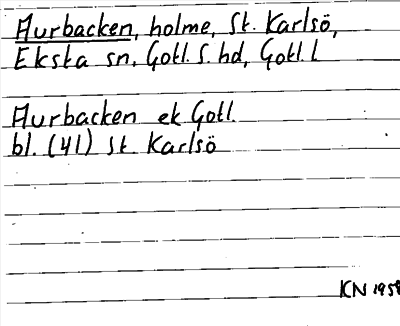 Aurbacken, holme, St. Karlsö,
Eksta sn, Gotl. S. hd, Gotl. l
Aurbacken ek Gotl.
bl. (41) St Karlsö
KN 1958